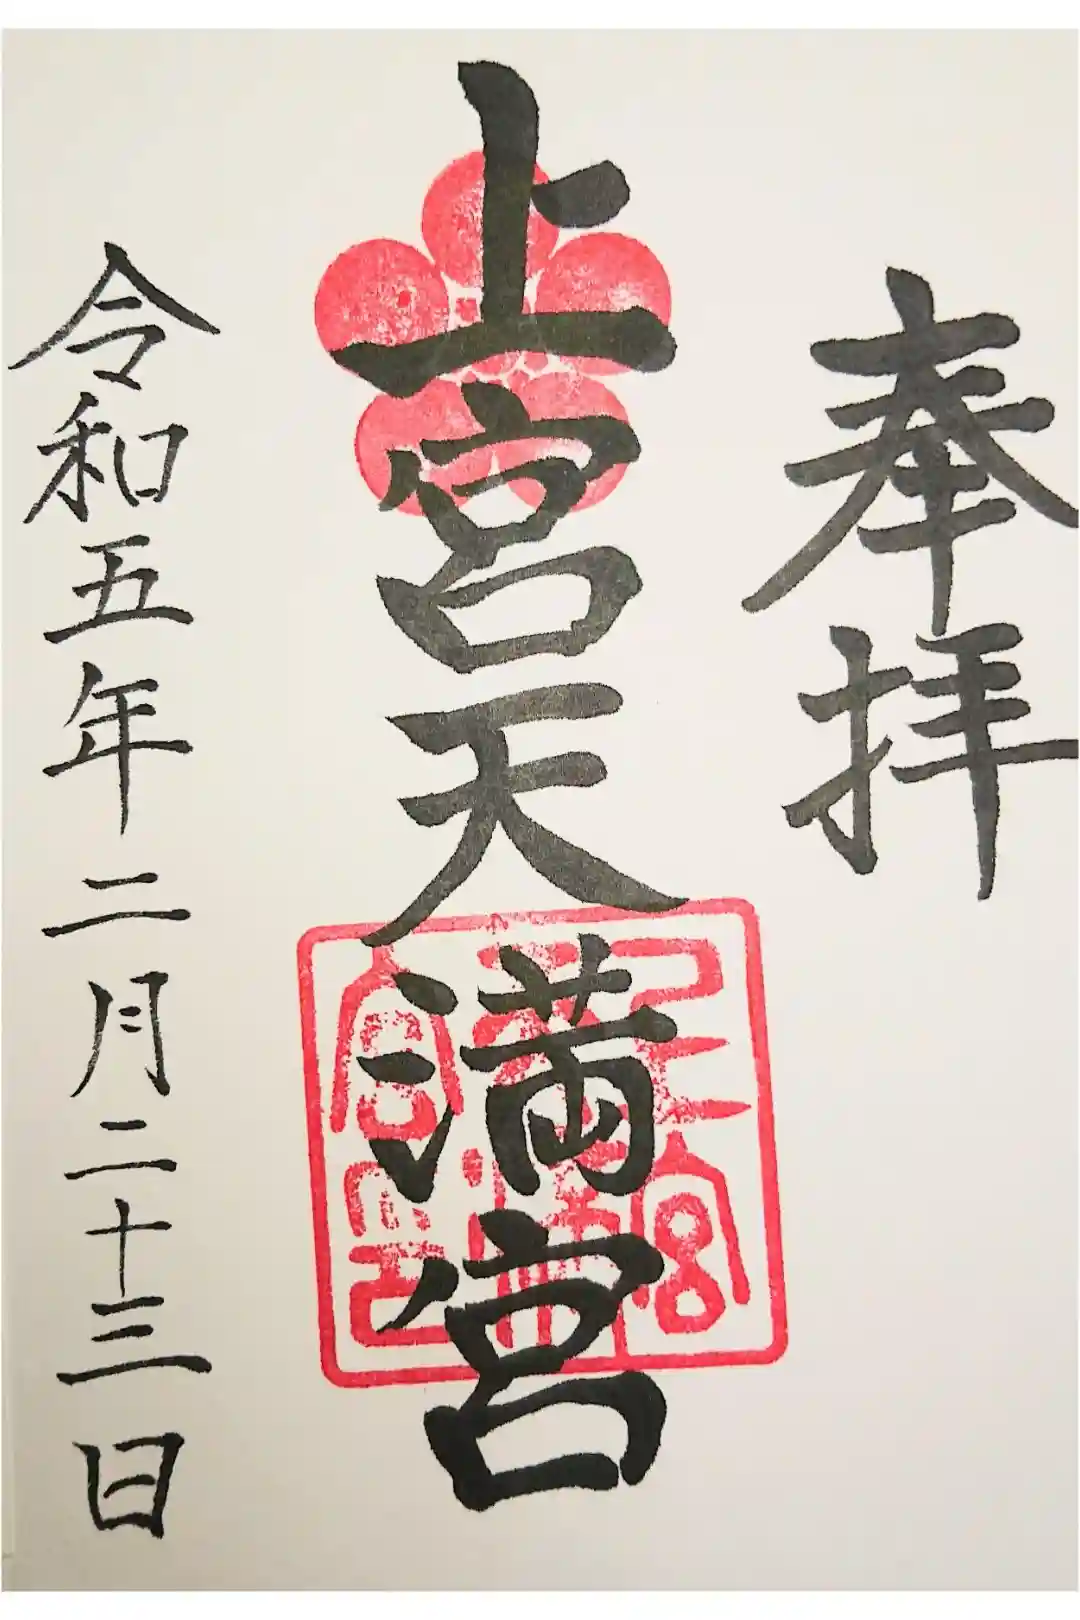 奉拝
上宮天満宮
令和五年二月二十三日